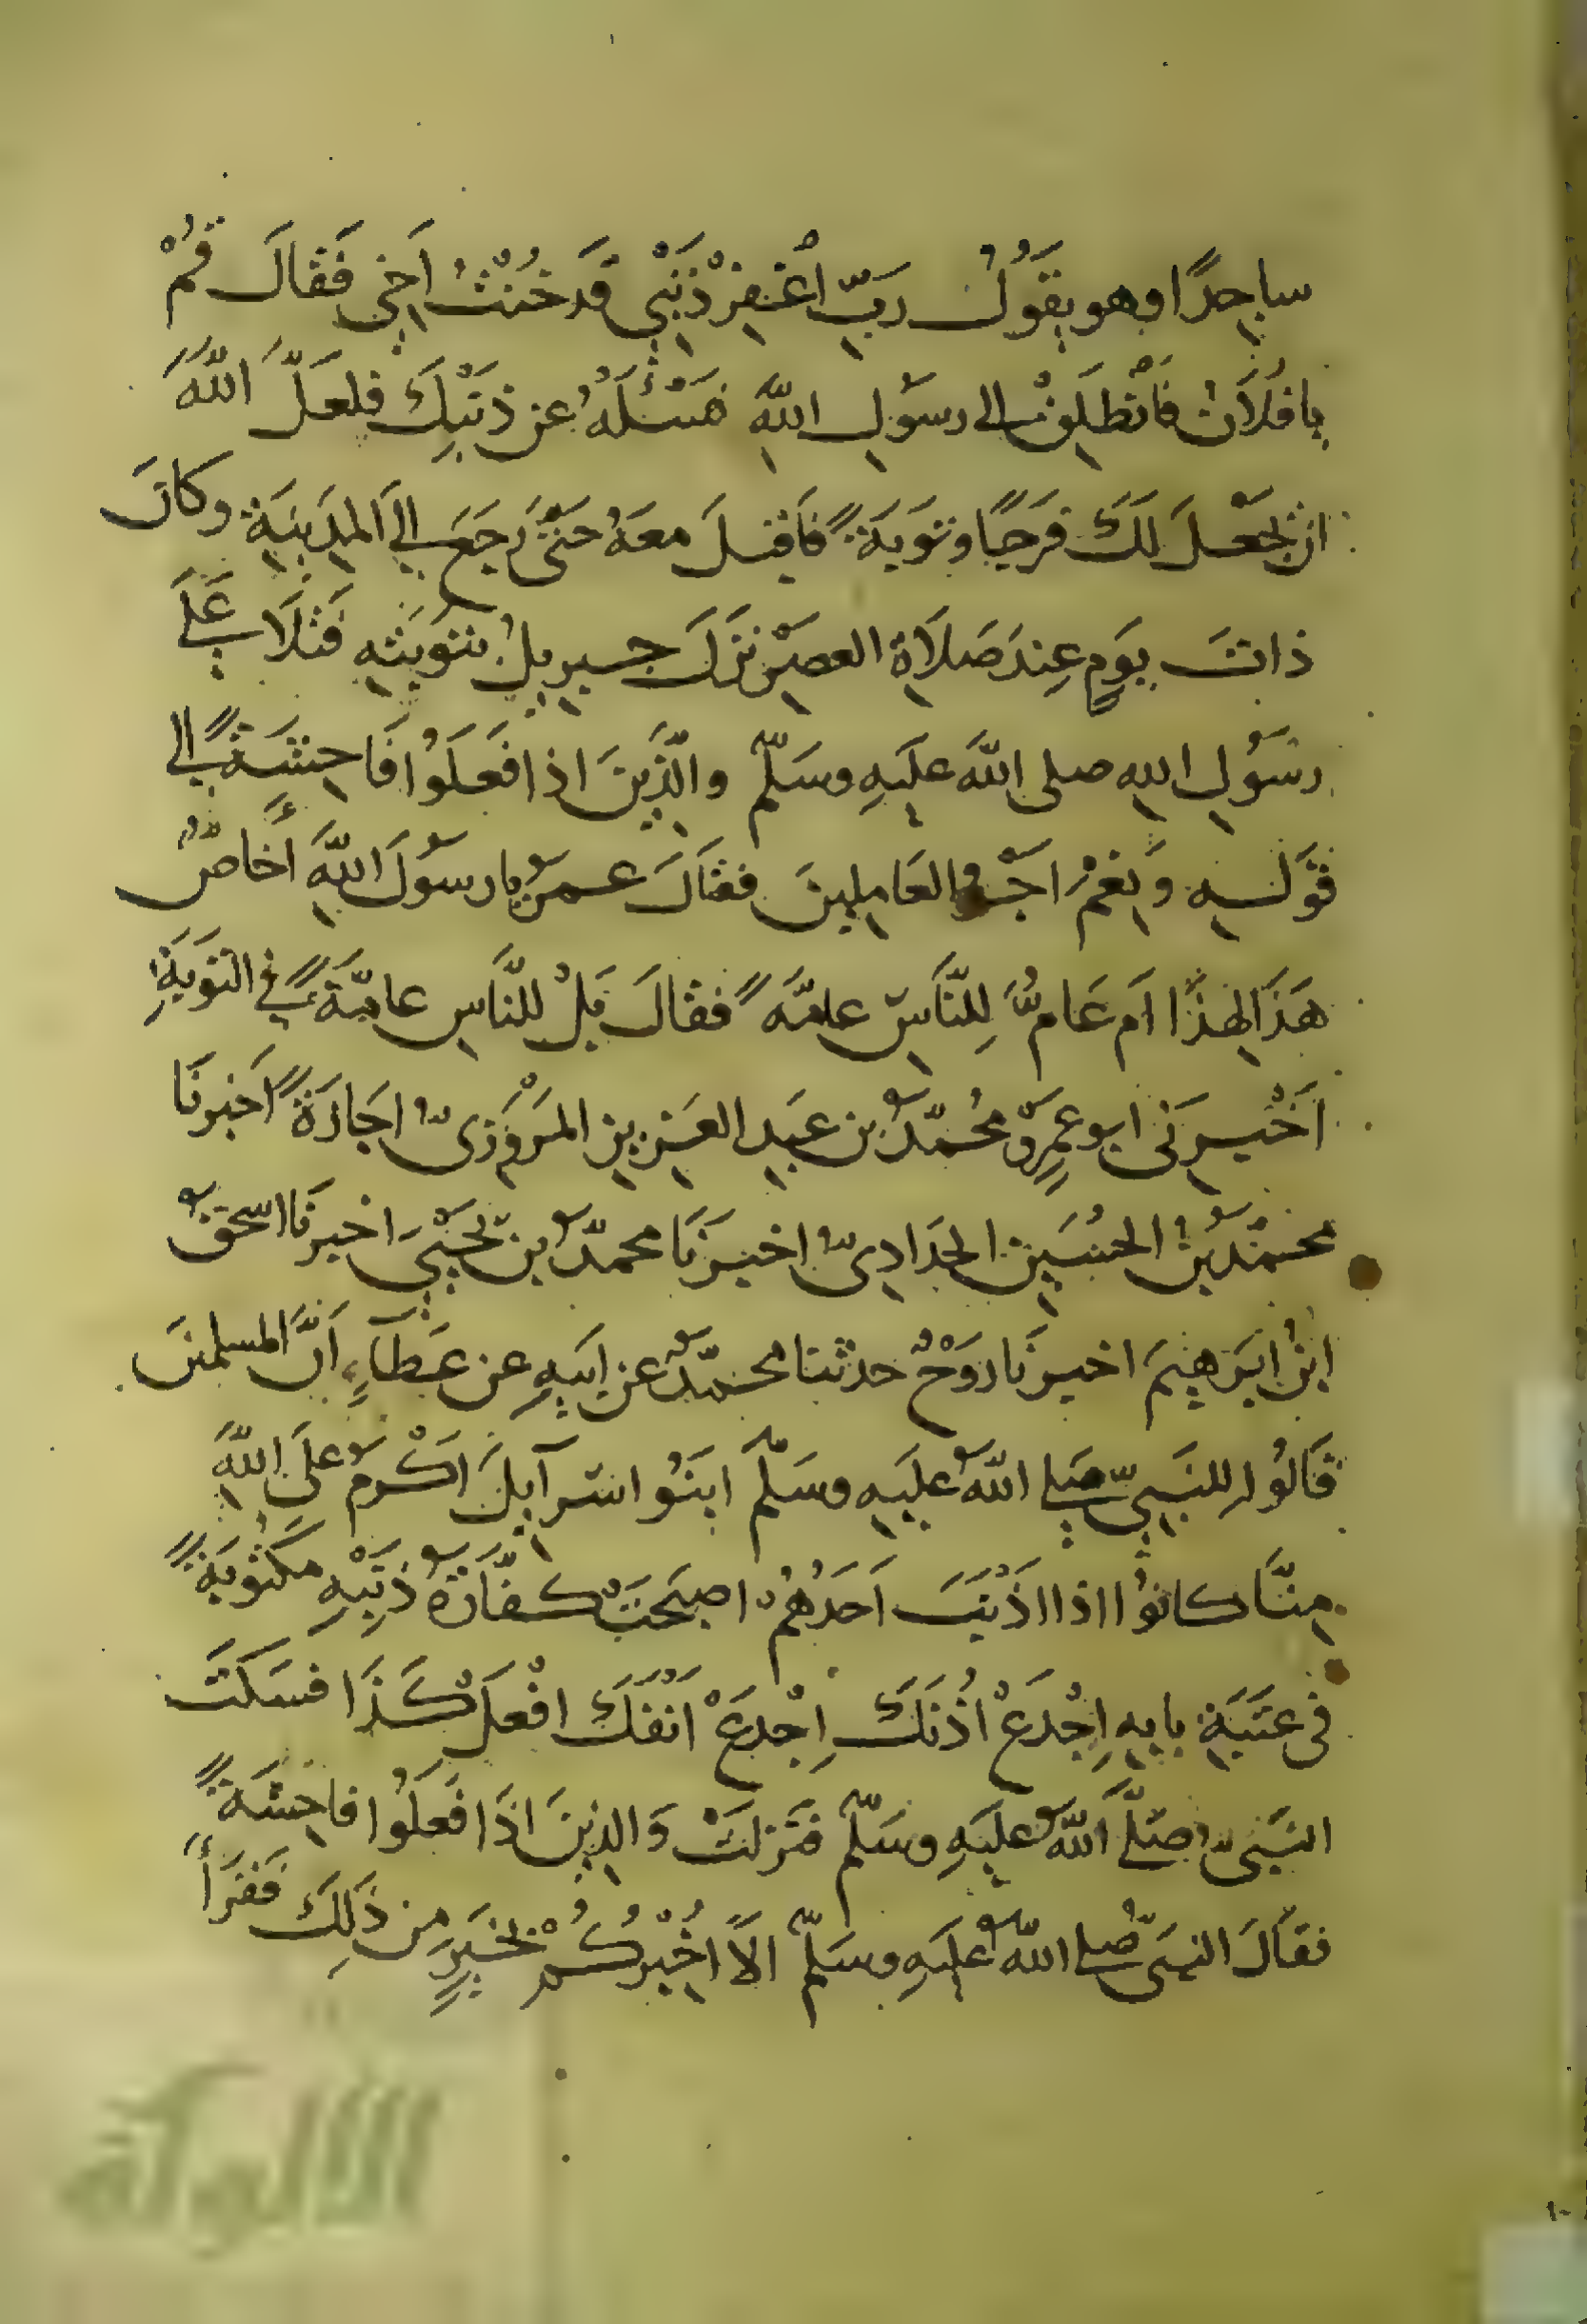 ساجدًا وهو يقَوُلُ رَبِّ اغْفِرْ ذَنْبِى قَد خُنْتُ اَخِى فَقَالَ قُمْ
يا فُلَانُ فَانْطَلِقْ الى رسوُلِ اللّهِ فَسْئَلْهُ عن ذَنْبِكَ فلعَلَّ اللّهَ
ان يجْعَلَ لَكَ فرَجًا وتوَبَةً فَاَقبلَ معَهُ حَتّى رَجَعَ الىَ المدِينَةِ وكانَ
ذاتَ يوَمٍ عِندَ صَلَاةِ العصِرْ نزَلَ جبريلُ بتوَبتهِ فَتَلَا عَلَى
رسَوُلِ اللهِ صلى اللّهُ علَيهِ وسَلّم والّذِينَ اذا فعَلَوُا فَاحِشَةً الى
قوَلهِ وَنِعْمَ اَجْرُ العَامِلِينَ فقَالَ عمرُ يا رسوُلَ اللّهِ أَخَاصٌّ
هَذَا لِهذَا اَم عَامٌّ لِلنّاَسِ عامّةً فقَالَ بَلْ للنَّاسِ عامّةً فى التوَبَةِ
اَخْبرَنى ابو عمرٍو محُمّدُ بن عَبدِ العَزِيزِ المَرْوَزِىُّ اجَازَةً اخَبرنَا
محمّدُ بنُ الحسُيَنِ الحدَادِىُّ اخبرَنَا محمّدُ بن يَحْيىَ اخبرنَا اسحقُ
ابنُ ابرَهِيمَ اخبرنَا رَوْحٌ حدثنا محمّدٌ عن ابَيهِ عن عَطَآءٍ اَنَّ المسلمينَ
قَالُوا للنبَىِّ صَلى اللّهُ علَيهِ وسَلّم ابَنُوا اسرآيلَ اَكْرَمُ علَى اللّهِ
مِنَّا كانوُا اذا اذَنَبَ اَحَدُهُمْ اصبَحَتْ كفّارَةُ ذَنبْهِ مكتوُبَةً
فى عتَبَةِ بابهِ اِجْدَعْ اُذُنَكَ اِجْدَعْ اَنْفَكَ افْعَلْ كَذَا فسَكتَ
النبَىُّ صَلَّى اللّهُ علَيهِ وسَلّم فنَزلتْ وَالذِينَ اذَا فَعَلَوُا فاحِشَةً
فقاَلَ النبىُّ صلى اللّهُ علَيهِ وسَلّم الَا اُخْبِرُكُمْ بخَيرٍ مِن ذَلِكَ فَقَرَأَ
الألوكة